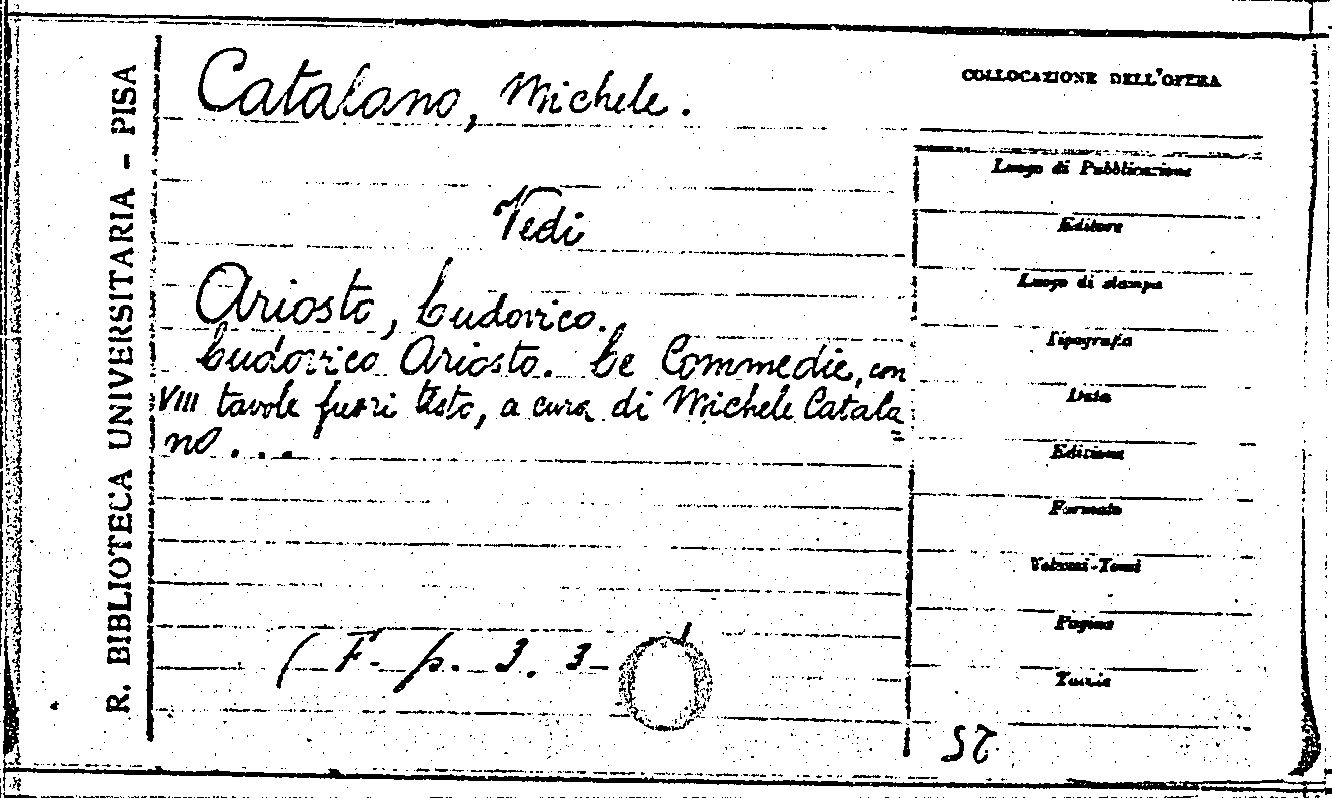 R. BIBLIOTECA UNIVERSITARIA - PISA
Catalano, Michele.
Vedi
Ariosto, Ludovico.
Ludovico Ariosto. Le Commedie, con
VIII tavole fuori testo, a cura di Michele Catala=
no...
(F. p. 3. 3
COLLOCAZIONE DELL'OPERA
Luogo di Pubblicazione
Editore
Luogo di stampa
Tipografia
Data
Edizione
Formato
Volumi-Tomi
Pagine
Tavole